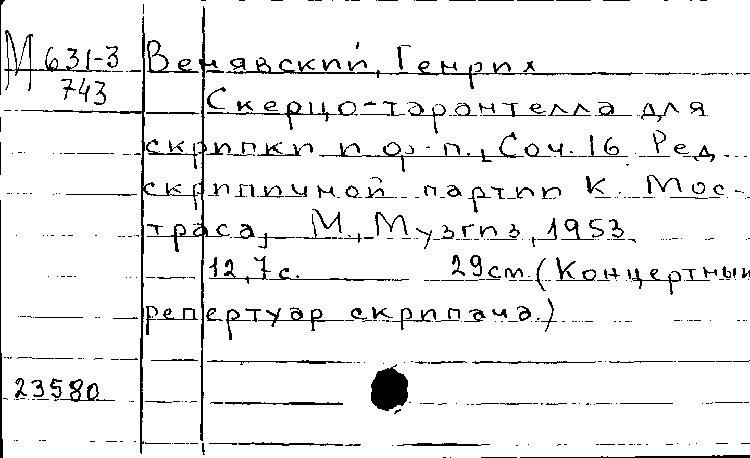 М 631-3
743
Венявский, Генрих
Скерцо-тарантелла для
скрипки и ф.-п., Соч. 16. Ред.
скрипичной партии К. Мос-
траса, М., Музгиз, 1953.
12, 7 с. 29 см. (Концертный
репертуар скрипача.)
23580